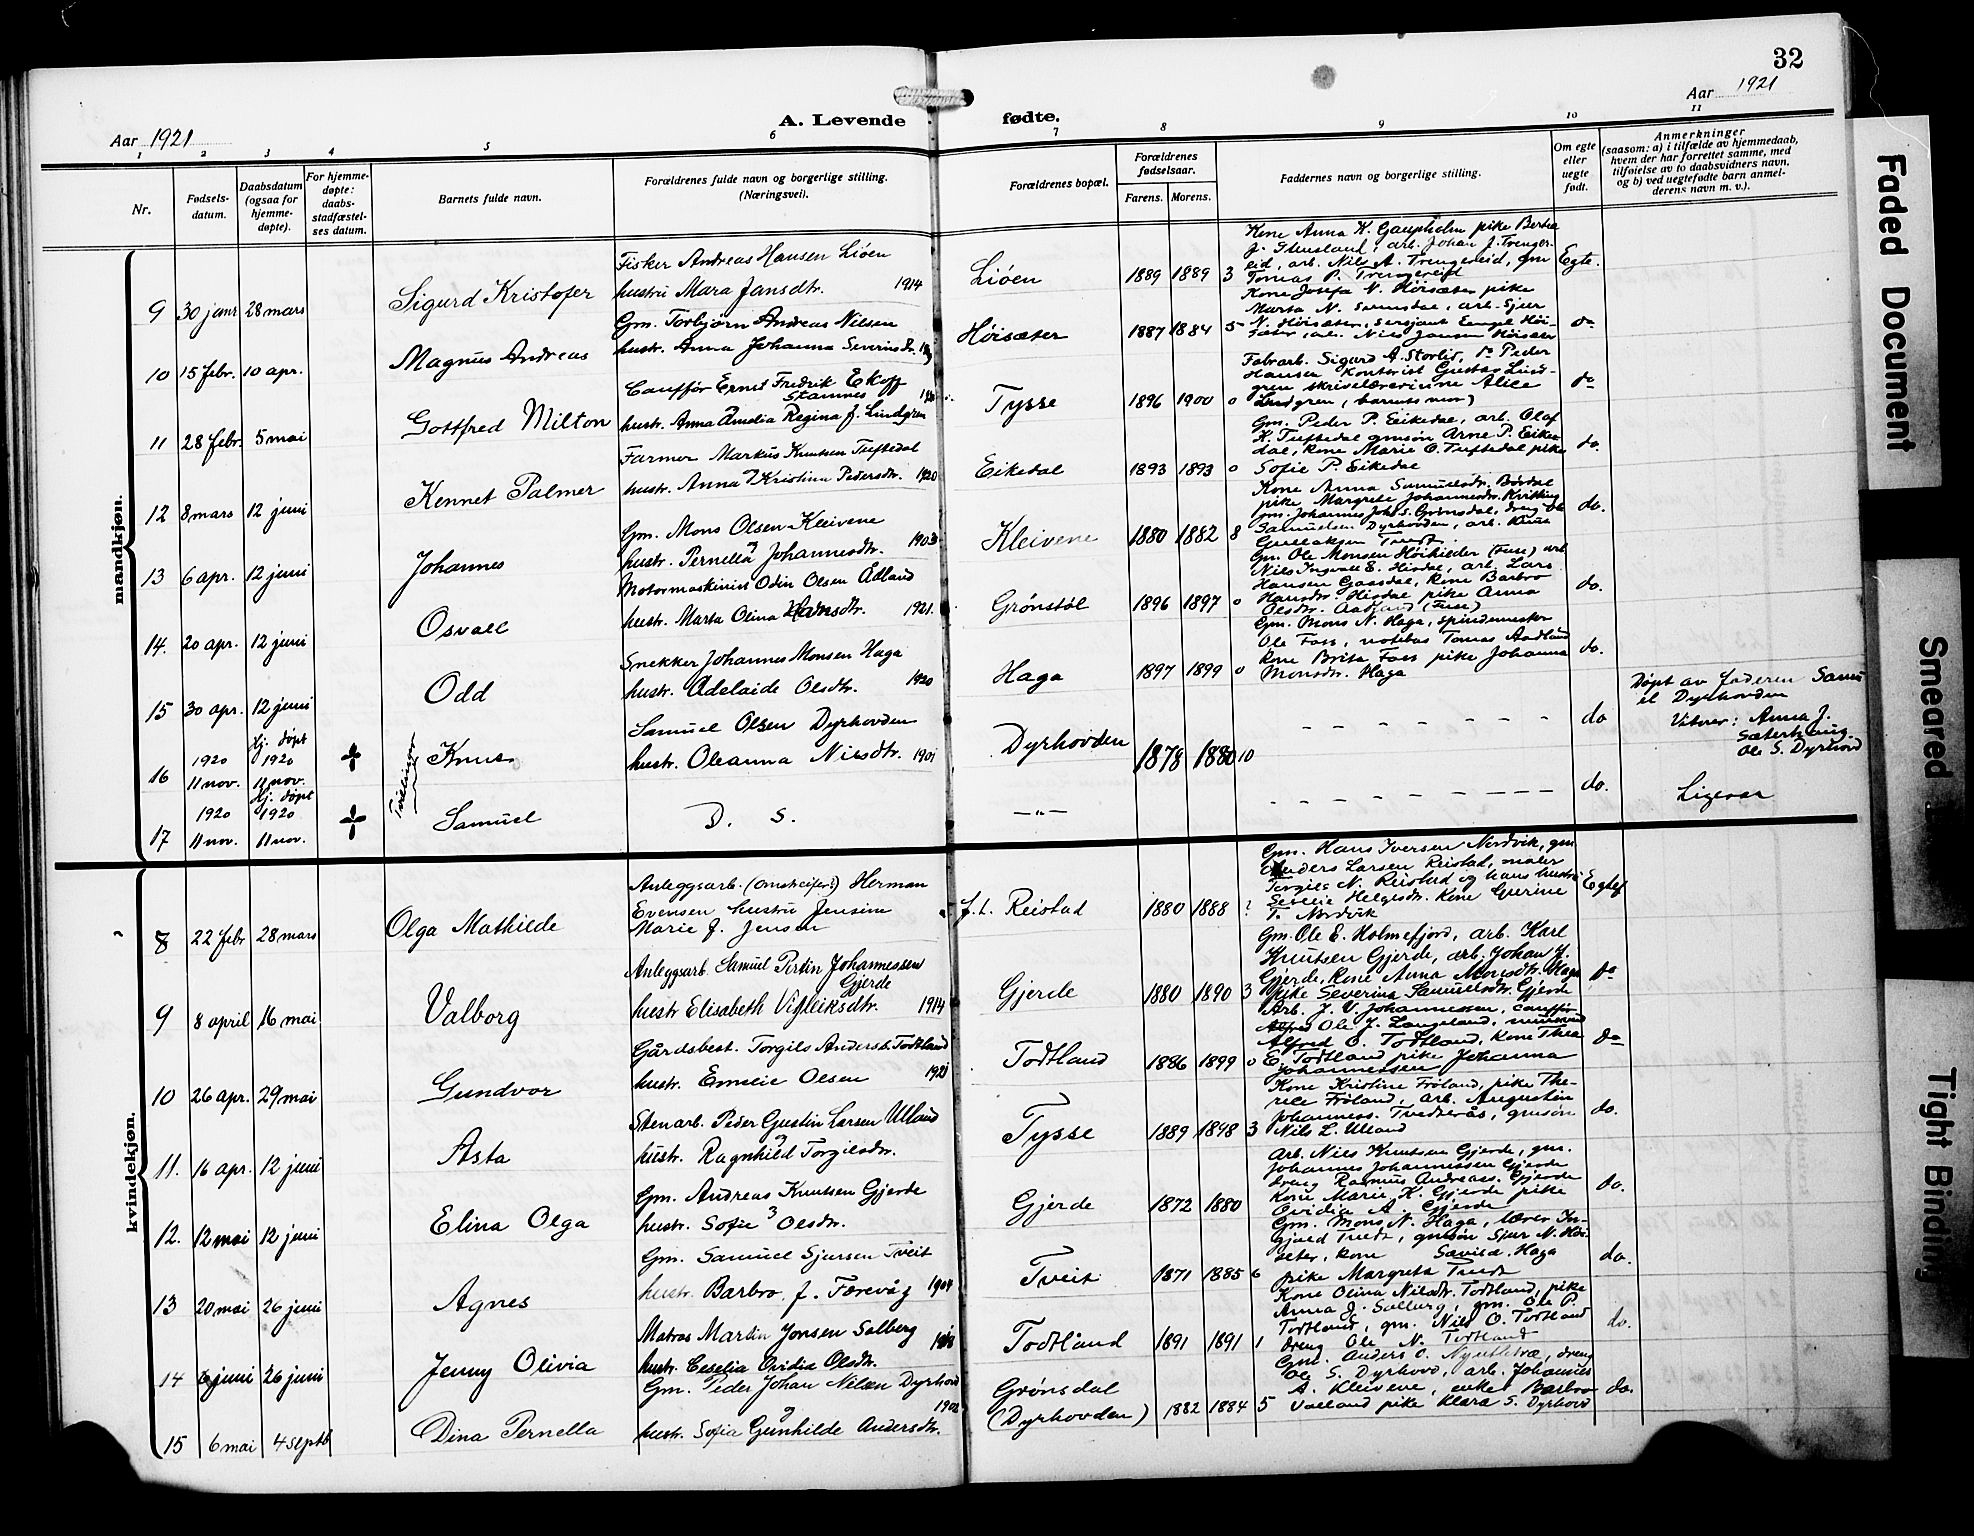 32
Aar 1921
A. Levende fødte.
Aar 1921
1 2 3 4 5 6 7 8 9 10 11
Nr.
Fødsels-
datum.
Daabsdatum
(ogsaa for
hjemme-
døpte).
For hjemme-
døpte:
daabs-
stadfæstel-
ses datum.
Barnets fulde navn.
Forældrenes fulde navn og borgerlige stilling.
(Næringsvei).
Forældrenes bopæl.
Forældrenes
fødselsaar.
Farens. Morens.
Faddernes navn og borgerlige stilling.
Om egte
eller
uegte
født.
Anmerkninger
(saasom: a) i tilfælde av hjemmedaab,
hvem der har forrettet samme, med
tilføielse av to daabsvidners navn,
og b) ved uegtefødte barn anmel-
derens navn m. v.).
mandkjøn.
9 30 janr 28 mars
Sigurd Kristofer
Fisker Andreas Hansen Liøen
hustru Mara Jansdtr. 1914
Liøen 1889 1889 3
Kone Anna K. Gaupholm pike Berta
J. Stensland, arb. Johan J. Trenger-
eid, arb. Nils A. Trengereid, gm
Tomas P. Trengereid
Egte.
10 15 febr. 10 apr.
Magnus Andreas
Gm. Torbjørn Andreas Nilsen
hustr. Anna Johanna Severinsdr.
Høisæter 1887 1884 5
Kone Josefa N. Høisæter pike
Marta N. Sæmsdal, arb. Sjur
N. Høisæter, sersjant Høi-
sæter, Nils Jansen Høisæter
do
11 28 febr. 5 mai
Gottfred Milton
Cauffør Ernst Fredrik Ekoff
Stamnes
hustr. Anna Amalia Regina f. Lindgren
Tysse 1896 1900 0
Fabrarb. Sigurd A. Storlid, do Peder
Hansen Kontorist Gustav Lind-
gren skrivelærerinne Alice
Lindgren, (barnets mor)
do
12 8 mars 12 juni
Kennet Palmer
Farmer Markus Knutsen Tuftedal
hustr. Anna Kristina Pedersdtr. 1920
Eikedal 1893 1893 0
Gm. Peder P. Eikedal, arb. Olaf
K. Tuftedal gmsøn Arne P. Eike-
dal, Kone Marie O. Tuftedal pike
Sofie P. Eikedal
do.
13 6 apr. 12 juni
Johannes
Gm. Mons Olsen Kleivene
hustr. Pernella Johannesdtr. 1903
Kleivene 1880 1882 8
Kone Anna Samuelsdr. Børdal
pike Margrete Johannesdr. Kvitting
gm. Johannes Johs. Grønsdal, dreng Ole
Samuelsen Dyrhovden, arb. Knut
Gullaksen Tveit.
do.
14. 20 apr. 12 juni
Osvall
Motormaskinist Odin Olsen Ådland
hustr. Marta Olina Hansdtr. 1921.
Grønstøl 1896 1897 0
Gm. Ole Monsen Høikilder (Fuse) arb.
Nils Ingvall E. Hisdal, arb. Lars
Hansen Gaasdal, Kone Barbro
Hansdtr. Hisdal pike Anna
Olsdtr. Aadland (Fuse)
do.
15 30 apr. 12 juni
Odd
Snekker Johannes Monsen Haga
hustr. Adelaide Olsdtr. 1920
Haga 1897 1899 0
Gm. Mons N. Haga, spindemester
Ole Foss, notebas Tomas Aadland
Kone Brita Foss pike Johanna
Monsdtr. Haga
do.
16 1920 11 nov. Hj. døpt 1920 11 nov.
Tvillinger
Knut
Samuel Olsen Dyrhovden
hustr. Oleanna Nilsdtr. 1901
Dyrhovden 1878 1880 10
do
Døpt av faderen Samu
el Dyrhovden
Vitner: Anna J.
Sæterhaug.
Ole S. Dyrhovd
17 1920 11 nov. Hj. døpt 1920 11 nov.
Samuel
D. S.
—"—
do.
Ligesaa
kvindekjøn.
8 22 febr 28 mars
Olga Mathilde
Anleggsarb. (omstreifer?) Herman
Evensen hustru Jensine
Marie f. Jensen
f.t. Reistad 1880 1888 ?
Gm. Hans Iversen Nordvik, gm.
Anders Larsen Reistad, maler
Torgils N. Reistad og hans hustru
Seselie Helgesdr. Kone Gurine
T. Nordvik
Egtef
9 8 april 16 mai
Valborg
Anleggsarb. Samuel Pertin Johannessen
Gjerde
hustr Elisabeth Vigleiksdtr. 1914
Gjerde 1880 1890 3
Gm. Ole E. Holmefjord, arb. Karl
Knutsen Gjerde, arb. Johan J.
Gjerde, Kone Anna Monsdtr. Haga
pike Severina Samuelsdtr. Gjerde
do
10 26 apr. 29 mai
Gundvor
Gårdsbest. Torgils Anders. Todtland
hustr. Emelie Olsen 1921
Todtland 1886 1899 0
Arb. J. V. Johannessen, cauffør
Alfred Ole J. Langeland,
Alfred O. Todtland, Kone Thea
E. Todtland pike Johanna
Johannessen
do
11. 16 apr. 12 juni
Asta
Stenarb. Peder Gustin Larsen Ulland
hustr. Ragnhild Torgilsdtr.
Tysse 1889 1898 3
Kone Kristine Frøland, pike The-
rece Frøland, arb. Augustin
Johanness. Tvedterås, gmsøn
Nils L. Ulland
do.
12. 12 mai 12 juni
Elina Olga
Gm. Andreas Knutsen Gjerde
hustr. Sofie Olsdtr.
Gjerde 1872 1880
Arb. Nils Knutsen Gjerde, gm.
Johannes Johannessen Gjerde
dreng Rasmus Andreass. Gjerde
Kone Marie K. Gjerde pike
Ovidia A. Gjerde
do.
13 20 mai 26 juni
Agnes
Gm. Samuel Sjursen Tveit
hustr. Barbro f. Førevåg 1904
Tveit 1871 1885 6
Gm. Mons N. Haga, lærer In-
gjald Tveit, gmsøn Sjur N. Høi-
seter, kone Haga
pike Margreta Tveit
do.
14 6 juni 26 juni
Jenny Olivia
Matros Martin Jonsen Solberg
hustr. Ceselia Ovidia Olsdtr.
Todtland 1891 1891 1
Kone Olina Nilsdtr. Todtland, pike
Anna J. Solberg, gm. Ole P.
Todtland, gm. Nils O. Todtland
dreng Ole N. Todtland
do.
15 6 mai 4 septb
Dina Pernella
Gm. Peder Johan Nilsen Dyrhovd
1902
hustr. Sofia Gunhilde Andersdtr.
Grønsdal
(Dyrhovden) 1882 1884 5
Gm. Anders O. dreng
Ole S. Dyrhovd, arb. Johannes
A. Kleivene, enke Barbro
Valland pike Klara S. Dyrhovd
do.
Faded Document
Smeared
Tight Binding